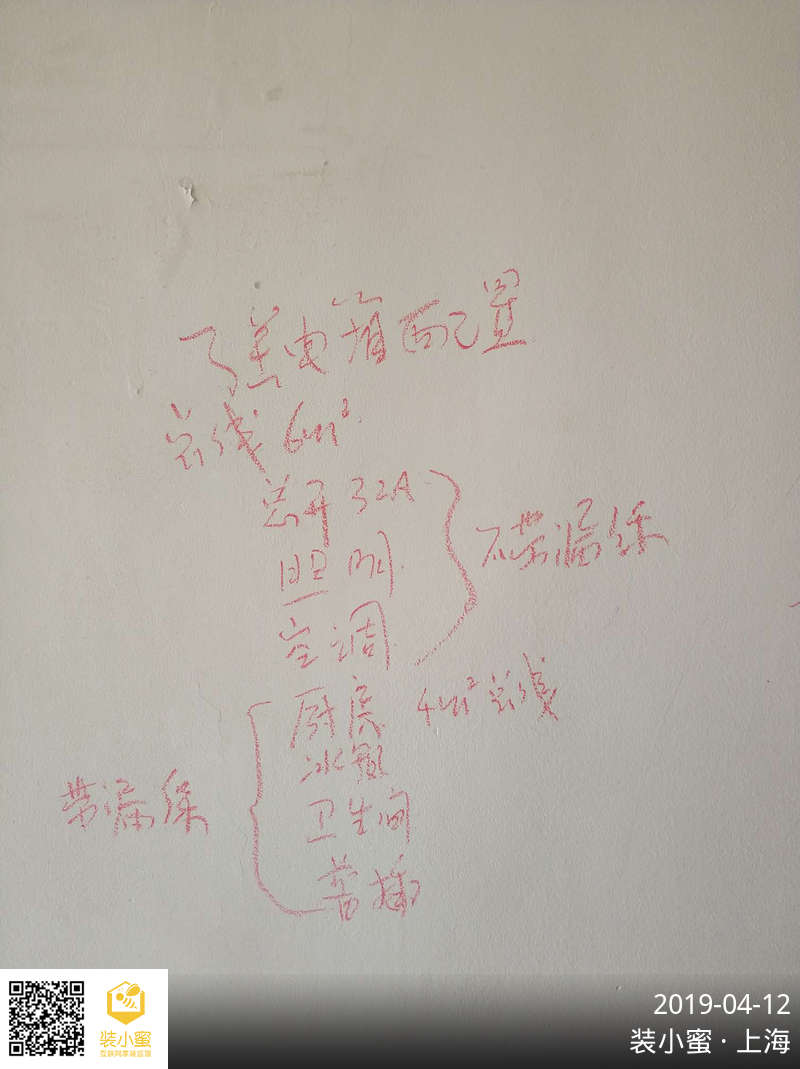 弱电箱配置
总线 6m²
总开 32A
照明
空调
不带漏保
厨房 4m² 总线
冰箱
卫生间
普插
带漏保
装小蜜
互联网家装监理
2019-04-12
装小蜜·上海